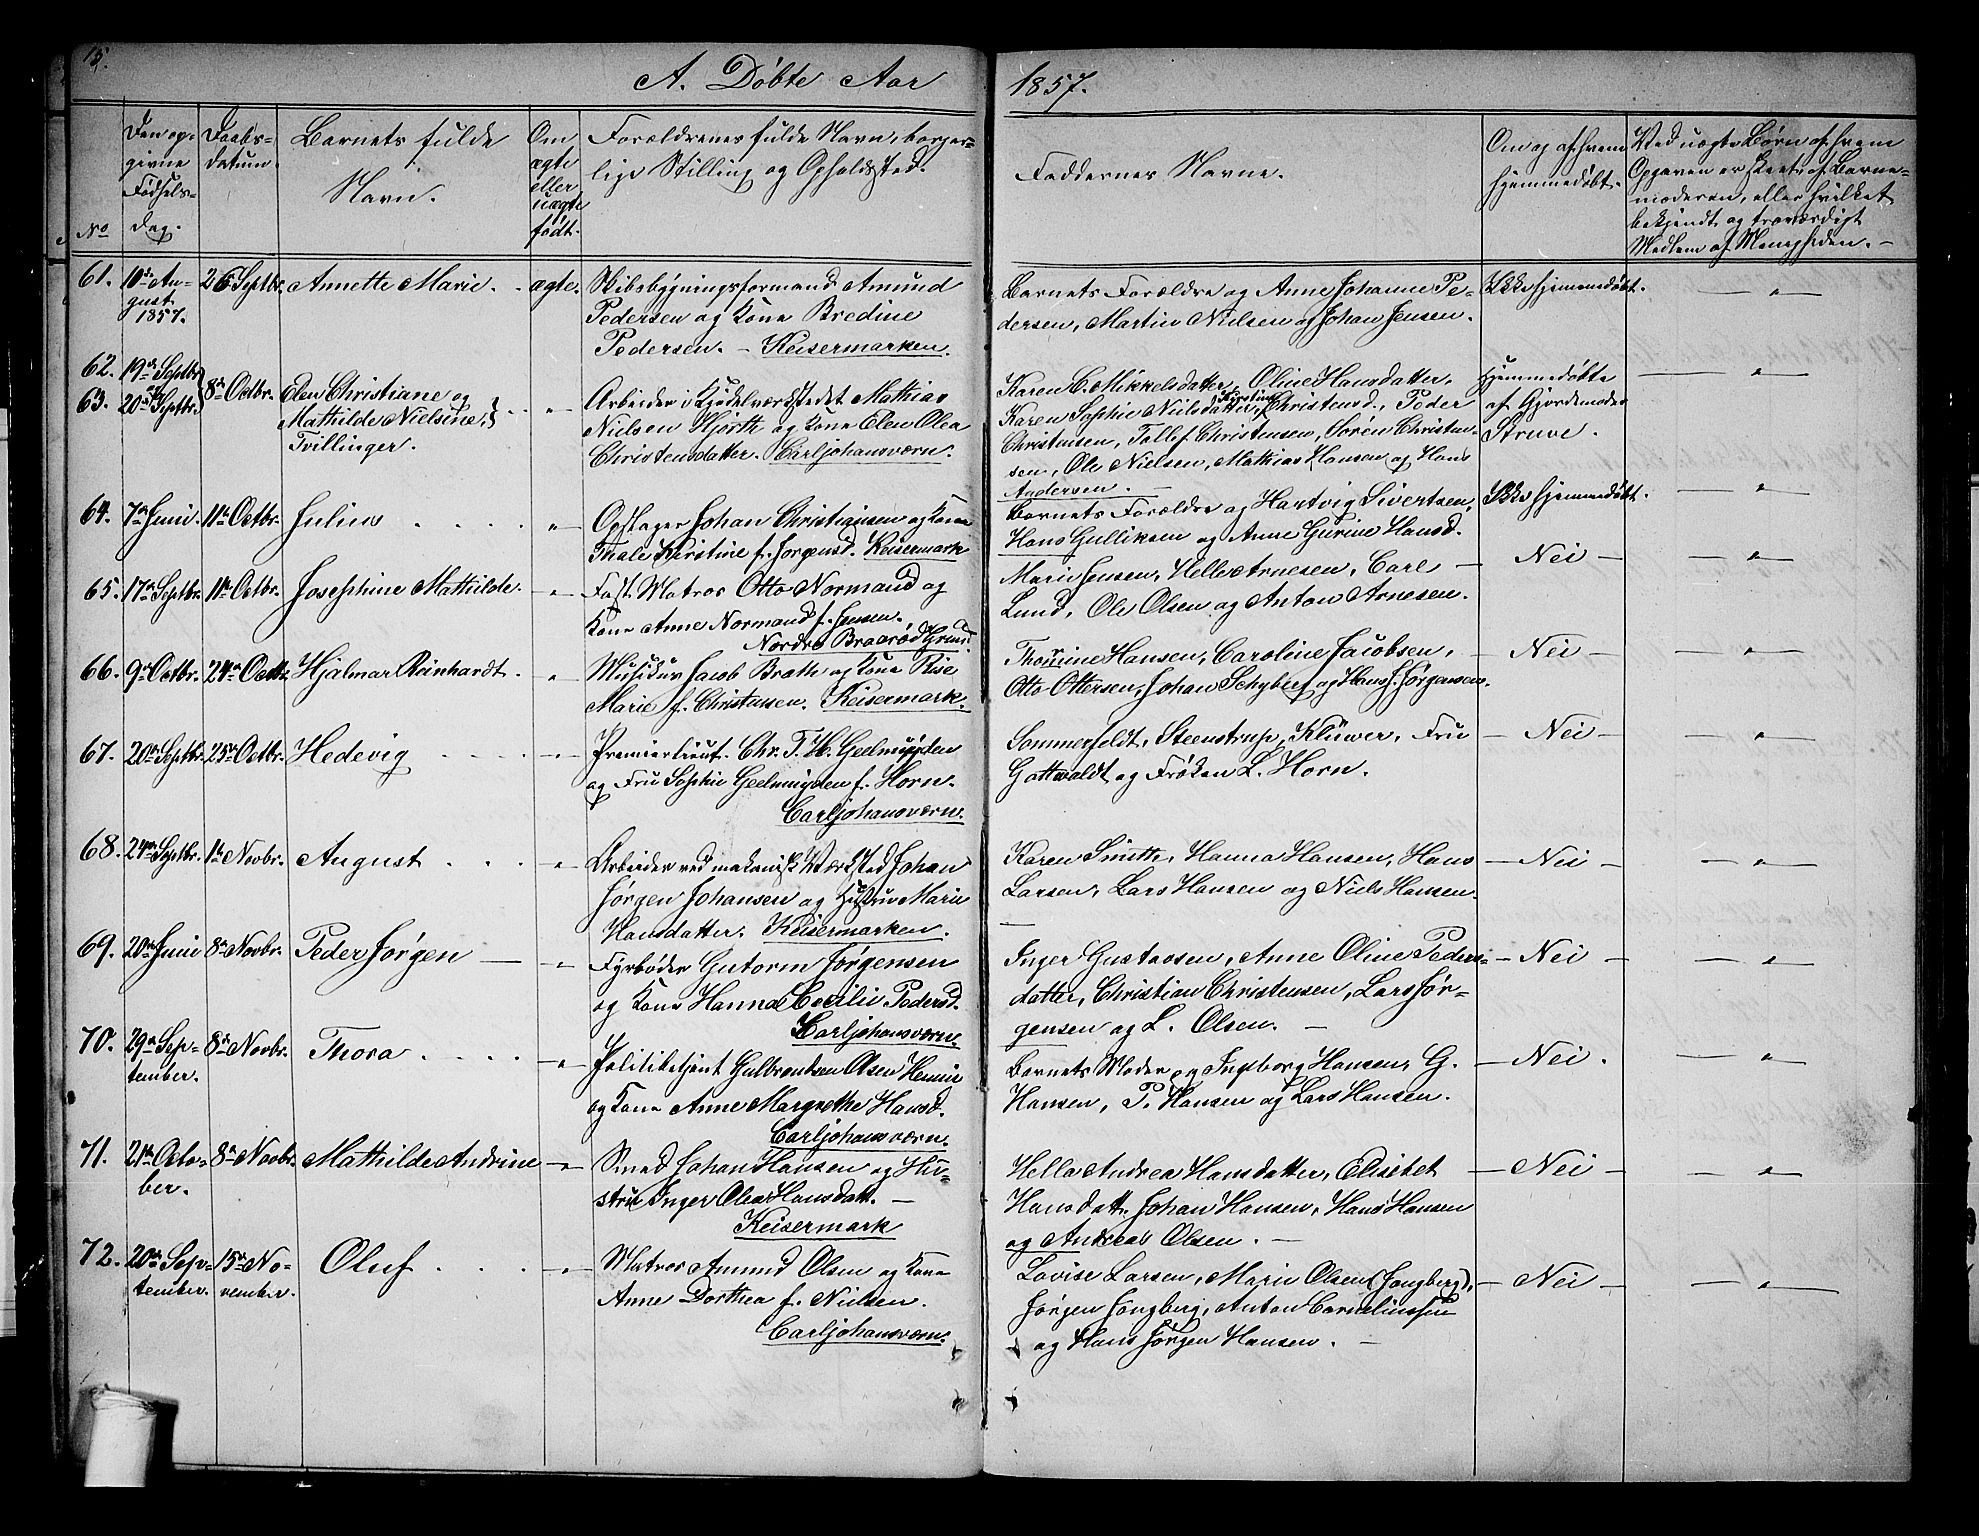 15.
A. Døbte Aar 1857.
No
Den op-
givne
Fødsels-
dag.
Daabs-
datum.
Barnets fulde
Navn.
Om
ægte
eller
uægte
født.
Forældrenes fulde Navn, borger-
lige Stilling og Opholdssted.
Faddernes Navne.
Om og af hvem
hjemmedøbt.
Ved uægte Børn af hvem
Opgaven er skeet, af Barne-
moderen, eller hvilket
bekjendt og troværdigt
Medlem af Menigheden. -
61. 10de Au- 26 Septbr. Annette Marie. ægte. Skibsbygningsformand Amund
gust
1857.
Pedersen og Kone Bredine
Pedersen. - Keisermarken.
Barnets Forældre og Anne Johanne Pe-
dersen, Martin Nielsen og Johan Jensen.
Ikke hjemmedøbt. — " —
62. 19de Septbr.
og
63. 20de Septbr. 8de Octbr. Elen Christiane og
Mathilde Nielsine,
Tvillinger.
" Arbeider i Kjedelværkstedet Mathias
Nielsen Hjorth og Kone Elen Olea
Christensdatter. Carljohansværn.
Karen C. Mikkelsdatter, Oline Hansdatter,
Karen Sophie Nielsdatter, Kirstine Christensd., Peder
Christensen, Tollef Christensen, Sørén Christen-
sen, Ole Nielsen, Mathias Hansen og Hans
Andersen. -
Hjemmedøbte
af Gjordemoder
Struve.
— " —
64. 7de Juni. 11te Octbr. Julius . . . . " Opslager Johan Christiansen og Kone
Thale Kirstine f. Jørgensd. Keisermark
Barnets Forældre og Hartvig Sivertsen,
Hans Gulliksen og Anne Gurine Hansd.
Ikke hjemmedøbt. — " —
65. 17de Septbr. 11te Octbr. Josephine Mathilde. " Fast Matros Otto Normand og
Kone Anne Normand f. Jensen.
Nordre Braarød Grund.
Marie Jensen, Helle Arnesen, Carl
Lund, Ole Olsen og Anton Arnesen.
— Nei — — " —
66. 9de Octbr. 24de Octbr. Hjalmar Reinhardt. " Musicus Jacob Brath og Kone Rise
Marie f. Christensen. Keisermark.
Thomine Hansen, Caroline Jacobsen,
Otto Ottersen, Johan Schyberg og Hans J. Jørgensen.
— Nei — — " —
67. 20de Septbr. 25de Octbr. Hedevig . . . . " Premierlieut. Chr. T. H. Geelmuyden
og Fru Sophie Geelmuyden f. Horn.
Carljohansværn.
Sommerfeldt, Steenstrup, Klüwer, Fru
Gottwaldt og Frøken L. Horn.
— Nei — — " —
68. 24de Septbr. 1te Novbr. August . . . " Arbeider ved mekanisk Værksted Johan
Jørgen Johansen og Hustru Marie
Hansdatter. Keisermarken.
Karen Smith, Hanna Hansen, Hans
Larsen, Lars Hansen og Niels Hansen.
— Nei — — " —
69. 20de Juni 8de Novbr. Peder Jørgen — " Fyrbøder Gutorm Jørgensen
og Kone Hanna Cecilie Pedersd.
Carljohansværn.
Inger Gustavsen, Anne Oline Peders-
datter, Christian Christensen, Lars Jør-
gensen og L. Olsen. —
— Nei — — " —
70. 29de Sep- 8de Novbr. Thora . . . . " Politibetjent Gulbrandsen Olsen
tember.
og Kone Anne Margrethe Hansd.
Carljohansværn.
Barnets Moder og Ingeborg Hansen, G.
Hansen, P. Hansen og Lars Hansen.
— Nei. — " —
71. 21de Octo- 8de Novbr. Mathilde Andrine " Smed Johan Hansen og Hu-
ber.
stru Inger Olea Hansdatt. —
Keisermark
Hella Andrea Hansdatter, Elisebet
Hansdatt. Johan Hansen, Hans Hansen
og Andreas Olsen. —
— Nei — — " —
72. 20de Sep- 15de No- Oluf . . . " Matros Amund Olsen og Kone
tember. vember.
Anne Dorthea f. Nielsen.
Carljohansværn.
Lovise Larsen, Marie Olsen (Jongberg),
Jørgen Jongberg, Anton Corneliussen
og Hans Jørgen Hansen. —
— Nei — — " —